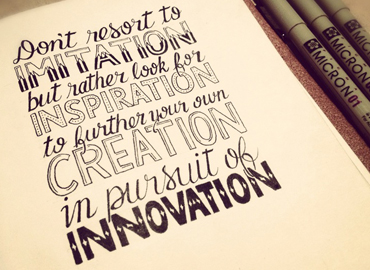 Don't resort to
IMITATION
but rather look for
INSPIRATION
to further your own
CREATION
in pursuit of
INNOVATION
MICRON
MICRON
MICRON 01